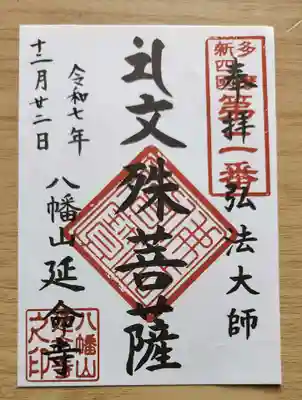 多摩
新四國
第二番
奉拝 弘法大師
礼文殊菩薩
八幡山延命寺
令和七年
十二月廿二日
八幡山
之印